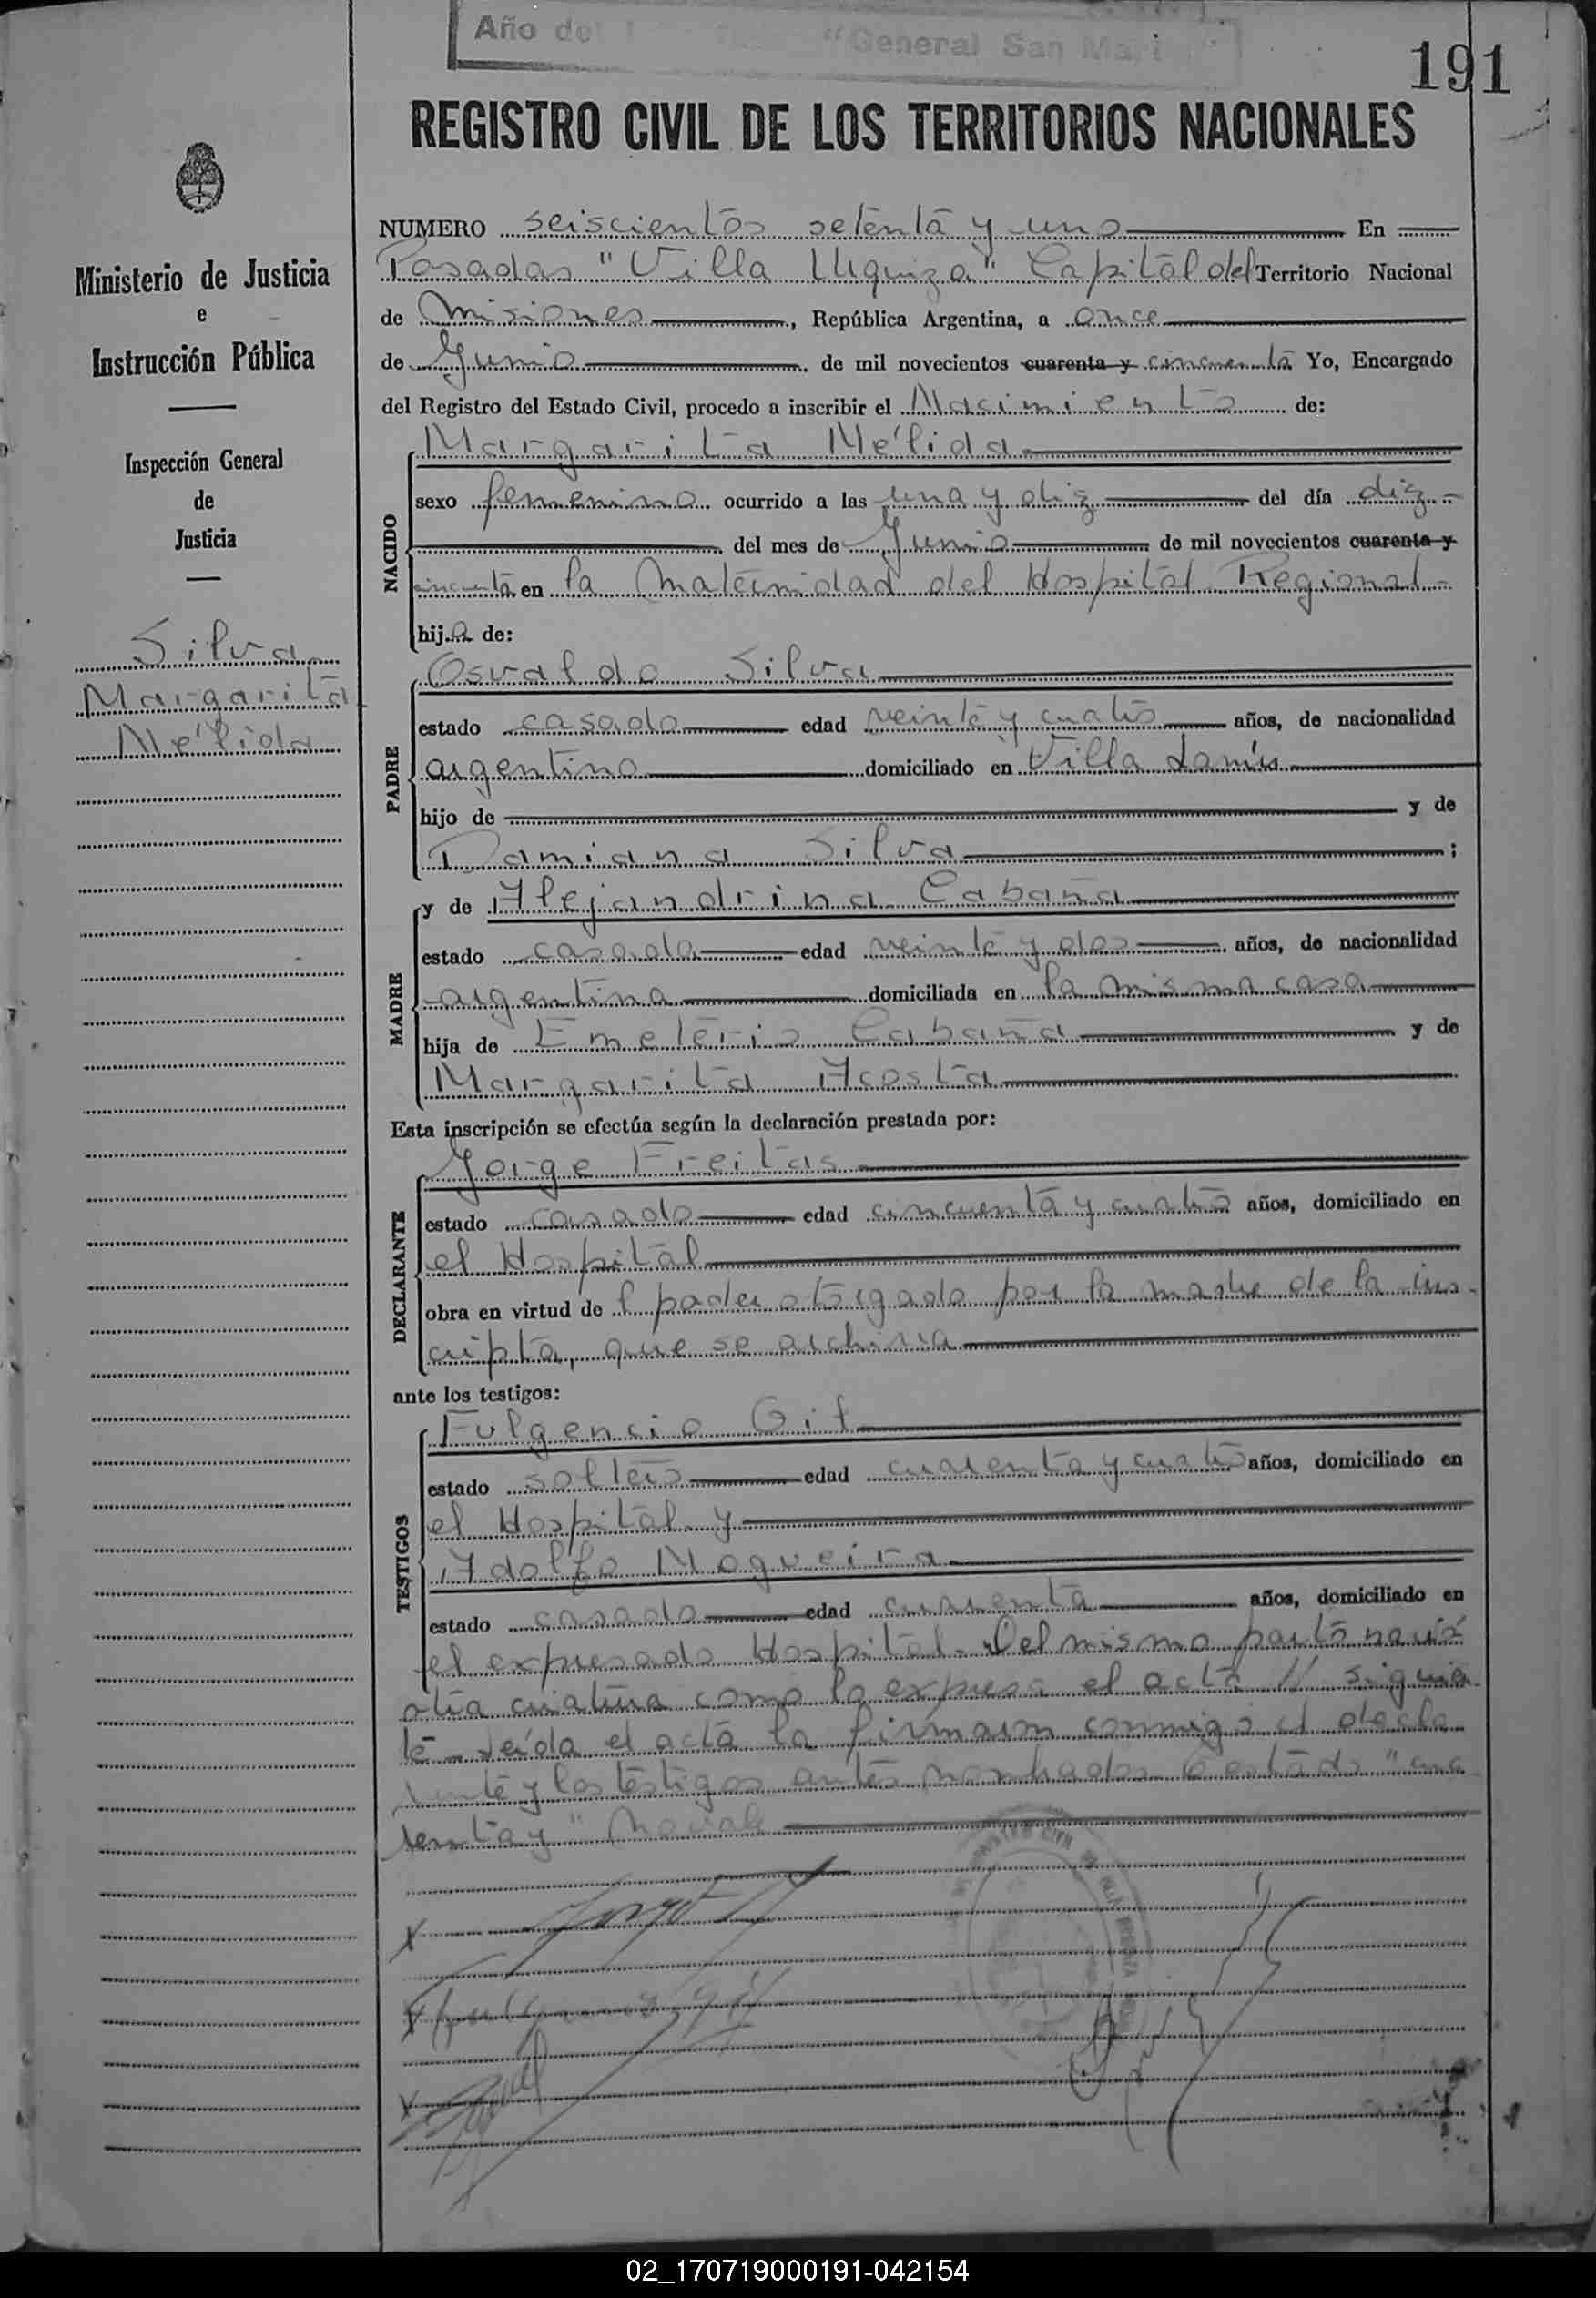 Año del "General San Martín"
191
REGISTRO CIVIL DE LOS TERRITORIOS NACIONALES
Ministerio de Justicia
e
Instrucción Pública
Inspección General
de
Justicia
Silva
Margarita
Nélida
NUMERO seiscientos setenta y uno En
Posadas "Villa Urquiza" Capital del Territorio Nacional
de Misiones, República Argentina, a once
de Junio de mil novecientos cuarenta y cincuenta Yo, Encargado
del Registro del Estado Civil, procedo a inscribir el Nacimiento de:
NACIDO
Margarita Nélida
sexo femenino ocurrido a las una y diez del día diez
del mes de Junio de mil novecientos cuarenta y
cincuenta en la Maternidad del Hospital Regional
hija de:
PADRE
Osvaldo Silva
estado casado edad veinte y cuatro años, de nacionalidad
argentino domiciliado en Villa Lanús
hijo de y de
Damiana Silva;
MADRE
y de Alejandrina Cabaña
estado casada edad veinte y dos años, de nacionalidad
argentina domiciliada en la misma casa
hija de Emeterio Cabaña y de
Margarita Acosta
Esta inscripción se efectúa según la declaración prestada por:
DECLARANTE
Jorge Freitas
estado casado edad cincuenta y cuatro años, domiciliado en
el Hospital
obra en virtud de l poder otorgado por la madre de la ins-
cripta, que se archiva
ante los testigos:
TESTIGOS
Fulgencio Gil
estado soltero edad cuarenta y cuatro años, domiciliado en
el Hospital y
Adolfo Nogueira
estado casado edad cuarenta años, domiciliado en
el expresado Hospital. Del mismo parto nació
otra criatura como lo expresa el acta // siguien
te - Leída el acta la firmaron conmigo el decla
rante y los testigos antes nombrados testado "cua
renta y" No vale
REGISTRO CIVIL
02_170719000191-042154